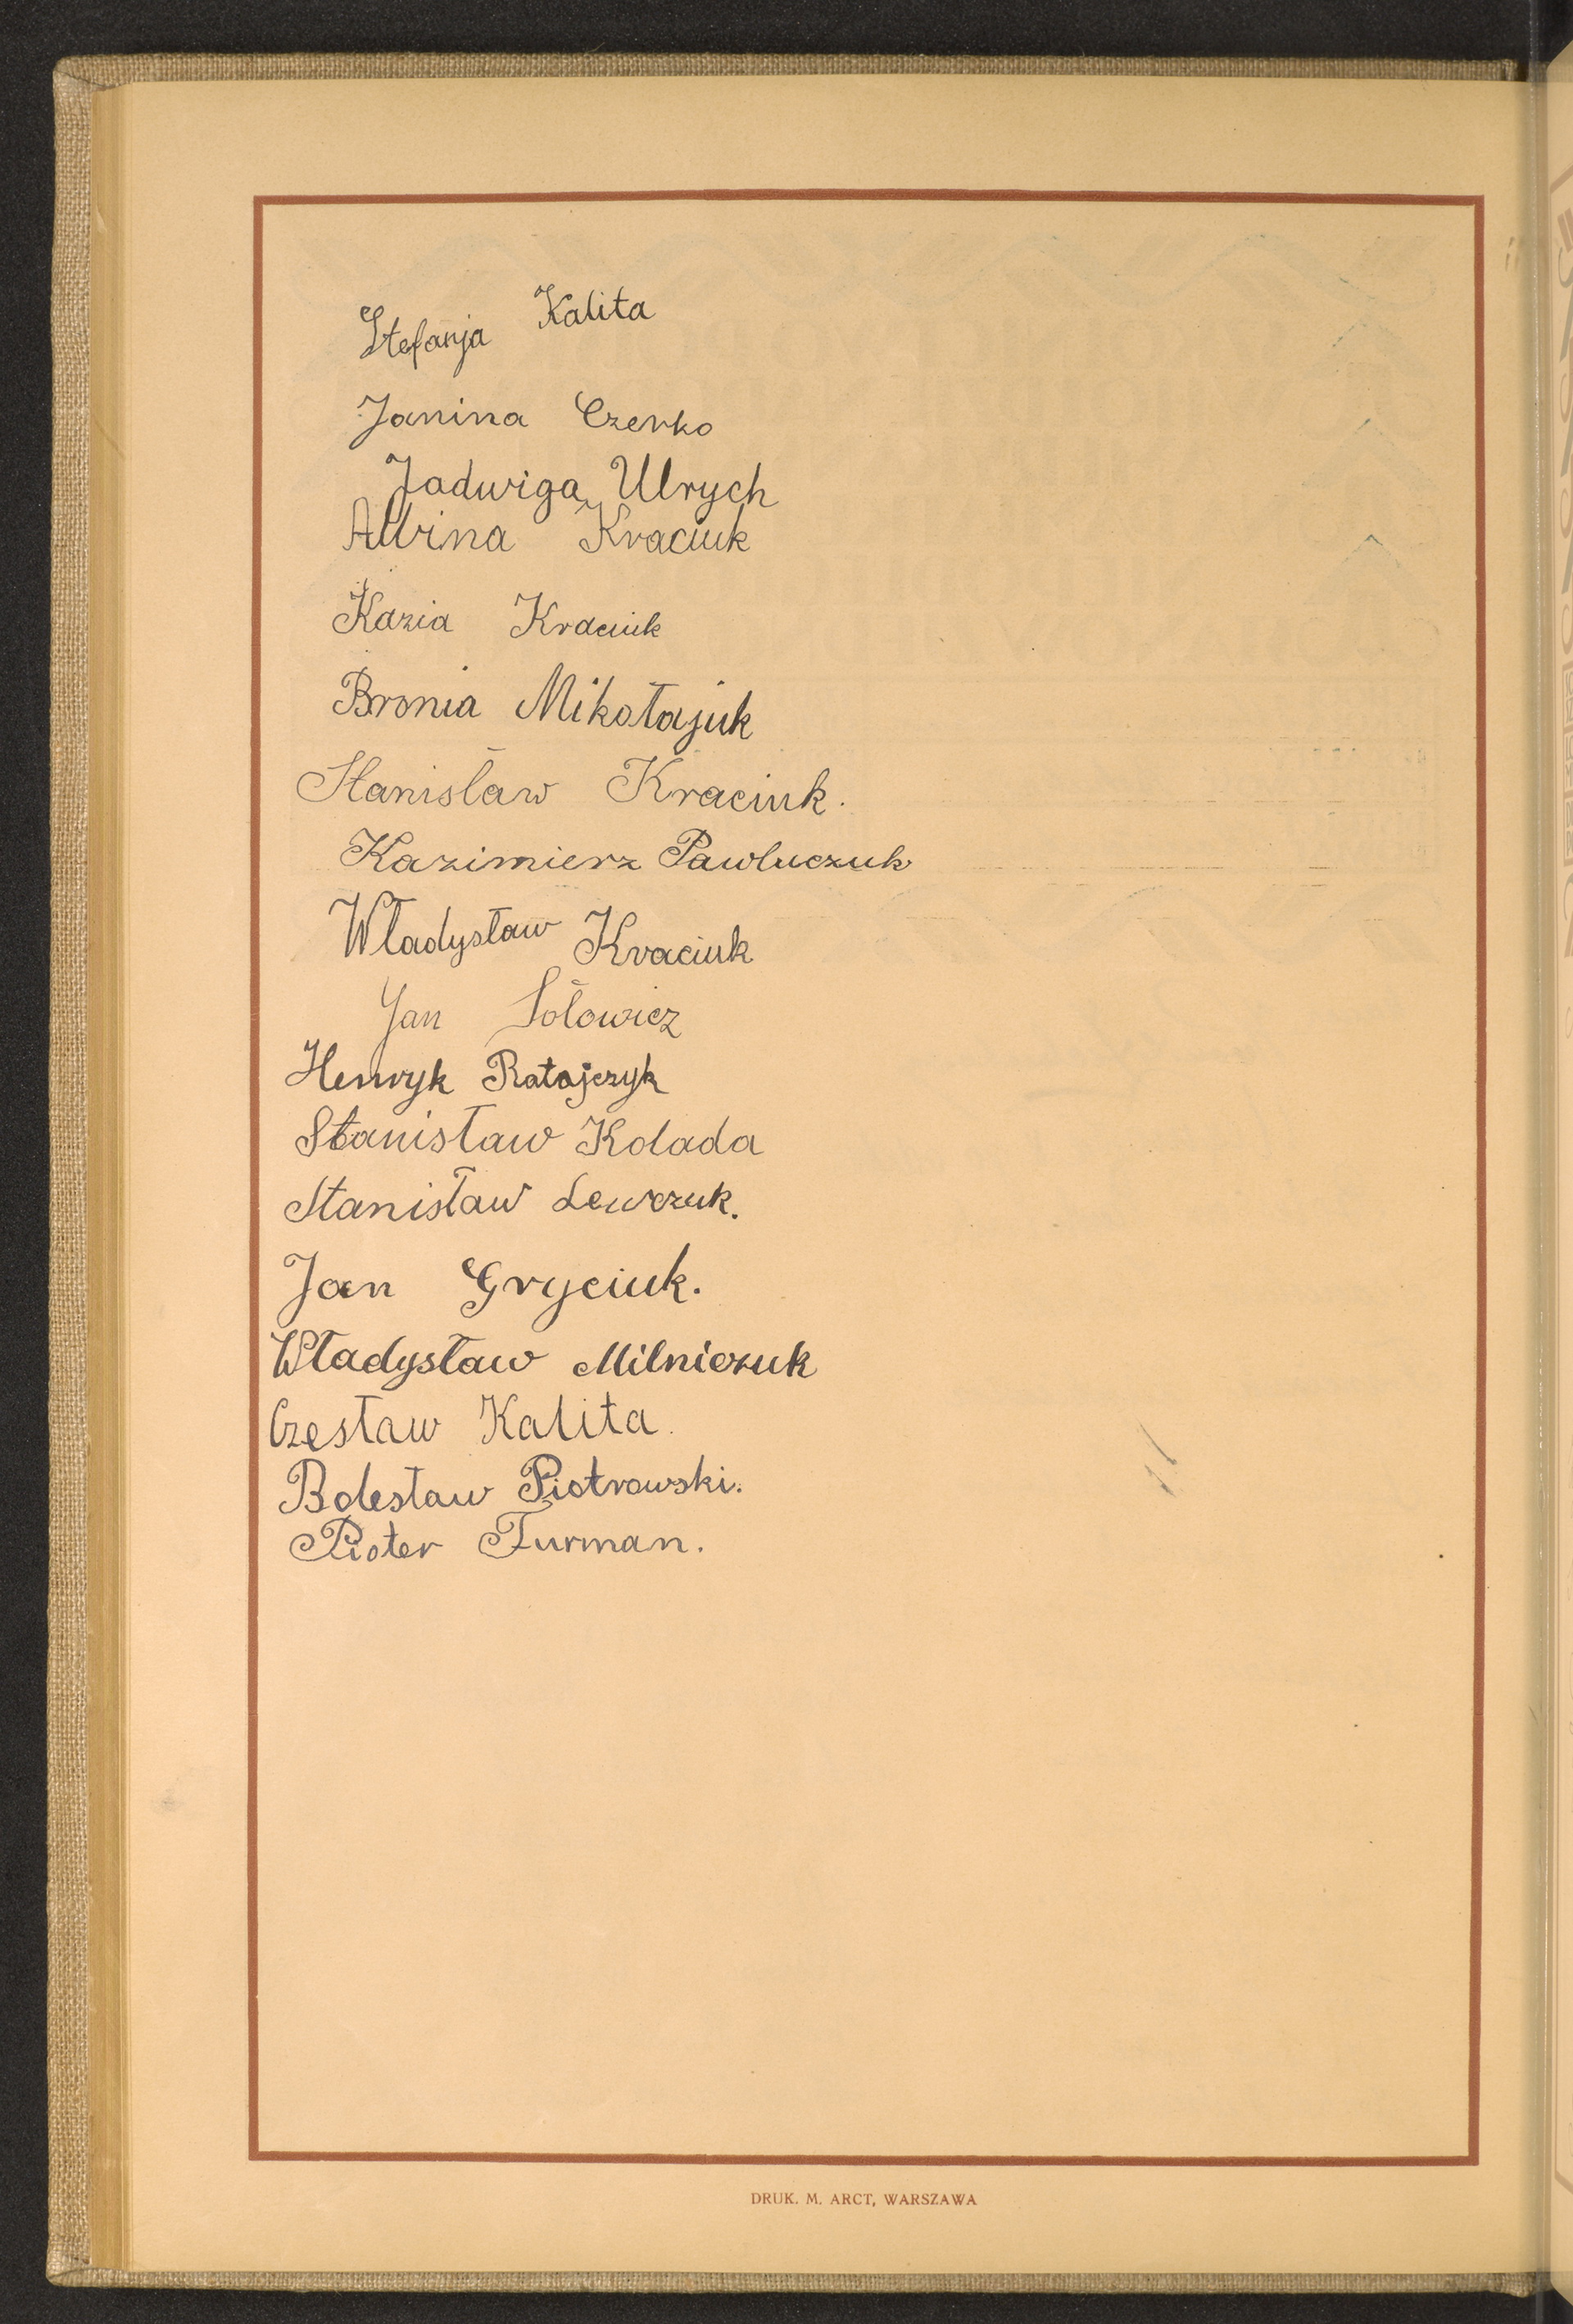 Stefanja Kalita
Janina Czerko
Jadwiga Ulrych
Albina Kraciuk
Kazia Kraciuk
Bronia Mikołajuk
Stanisław Kraciuk.
Kazimierz Pawluczuk
Władysław Kraciuk
Jan Sołowicz
Henryk Ratajczyk
Stanisław Kolada
Stanisław Lewczuk.
Jan Gryciuk.
Władysław Milniczuk
Czesław Kalita.
Bolesław Piotrowski.
Pioter Furman.
DRUK. M. ARCT, WARSZAWA